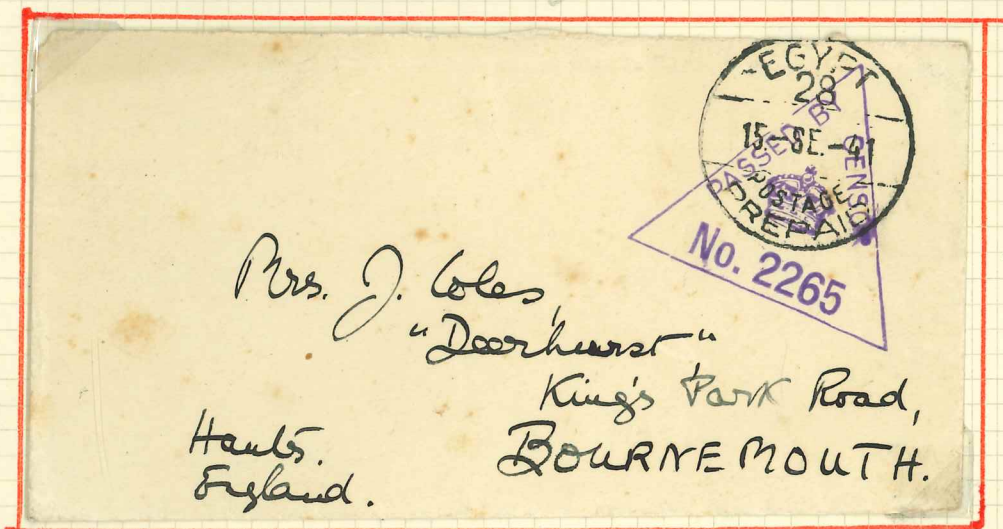 EGYPT
28
15.-SE.-41
POSTAGE
PREPAID
PASSED BY CENSOR
No. 2265
Mrs. J. Coles,
"Deerhurst"
King's Park Road,
BOURNEMOUTH.
Hants.
England.